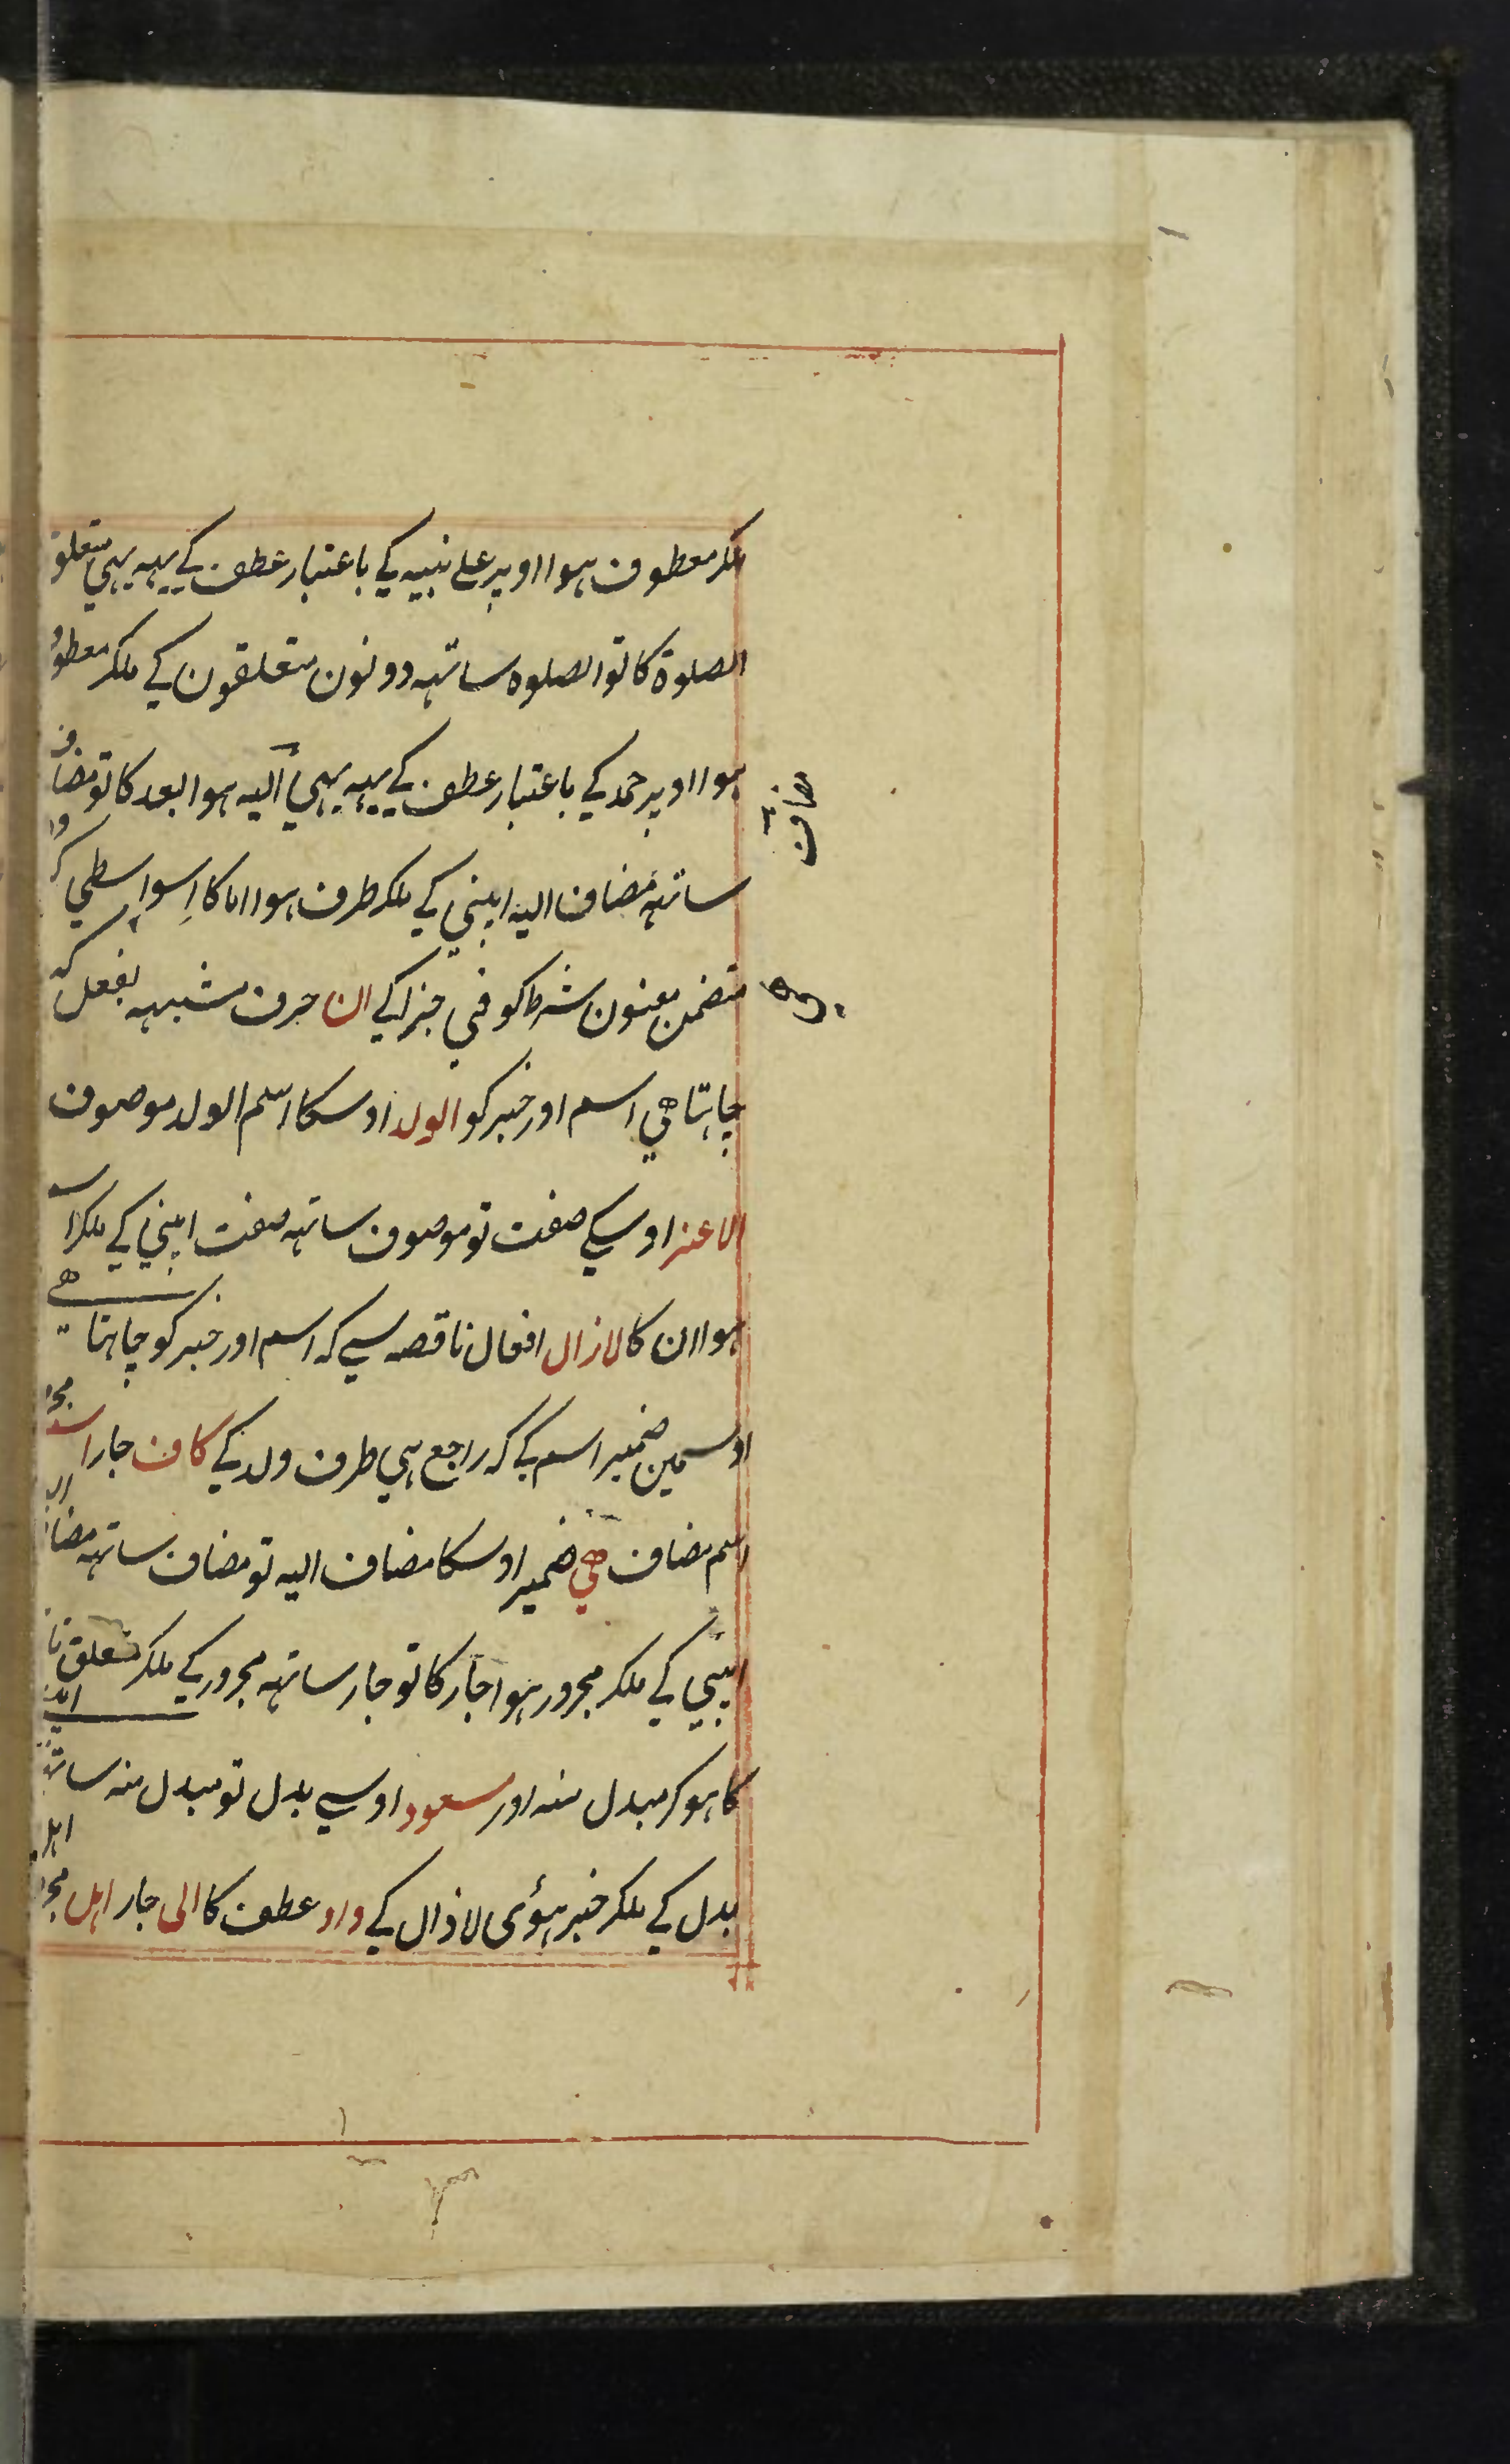 ملکر معطوف ہوا اوپر علی نبیہ کی باعتبار عطف کے یہہ بہی متعلق
الصلوۃ کا تو الصلوہ ساتہہ دونون متعلقون کی ملکر معطوف
ہوا اوپر حمد کی باعتبار عطف کے یہہ بہی الیہ ہوا بعد کا تو مضاف
مضاف
ساتہہ مضاف الیہ اپنی کی ملکر ظرف ہوا اما کا اسواسطی کہ
متضمن معنون شرط کو فی جزا کی ان حرف مشبہہ بفعل کہ
چاہتا ھی اسم اور خبر کو الولد اوسکا اسم الولد موصوف
الاعز اوسکے صفت تو موصوف ساتہہ صفت اپنی کی ملکر اسم
ہوا ان کا لازال افعال ناقصہ سے کہ اسم اور خبر کو چاہتا ھے
اوسمین ضمیر اسم کے کہ راجع ہی طرف ولد کی کاف جار اسم
اسم مضاف ھی ضمیر اوسکا مضاف الیہ تو مضاف ساتہہ مضاف الیہ
اپنی کی ملکر مجرور ہوا جار کا تو جار ساتہہ مجرور کے ملکر متعلق
کا ہو کر مبدل منہ اور مسعود اوسے بدل تو مبدل منہ ساتہہ
بدل کی ملکر خبر ہوئی لازال کی واو عطف کا الی جار اہل